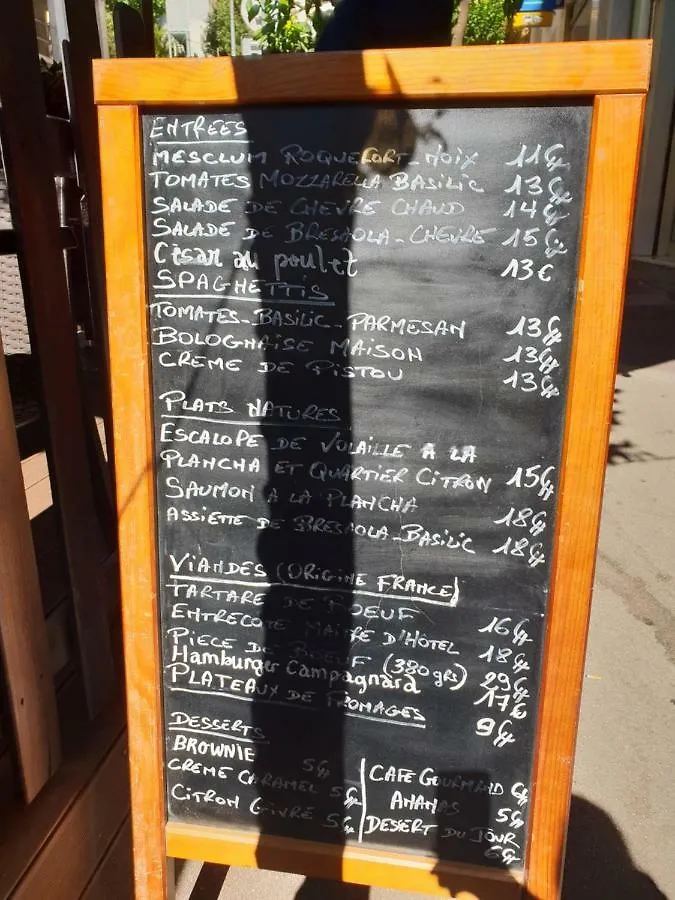 ENTREES
MESCLUM ROQUEFORT-NOIX 11€
TOMATES MOZZARELLA BASILIC 13€
SALADE DE CHEVRE CHAUD 14€
SALADE DE BRESAOLA-CHEVRE 15€
César au poulet 13€
SPAGHETTIS
TOMATES-BASILIC-PARMESAN 13€
BOLOGNAISE MAISON 13€
CREME DE PISTOU 13€
PLATS NATURES
ESCALOPE DE VOLAILLE A LA
PLANCHA ET QUARTIER CITRON 15€
SAUMON A LA PLANCHA 18€
ASSIETTE DE BRESAOLA-BASILIC 18€
VIANDES (ORIGINE FRANCE)
TARTARE DE BOEUF 16€
ENTRECOTE MAITRE D'HOTEL 18€
PIECE DE BOEUF (380grs) 29€
Hamburger Campagnard 17€
PLATEAUX DE FROMAGES 9€
DESSERTS
BROWNIE 5€
CREME CARAMEL 5€
CITRON GIVRE 5€
CAFE GOURMAND €
ANANAS 5€
DESSERT DU JOUR
6€